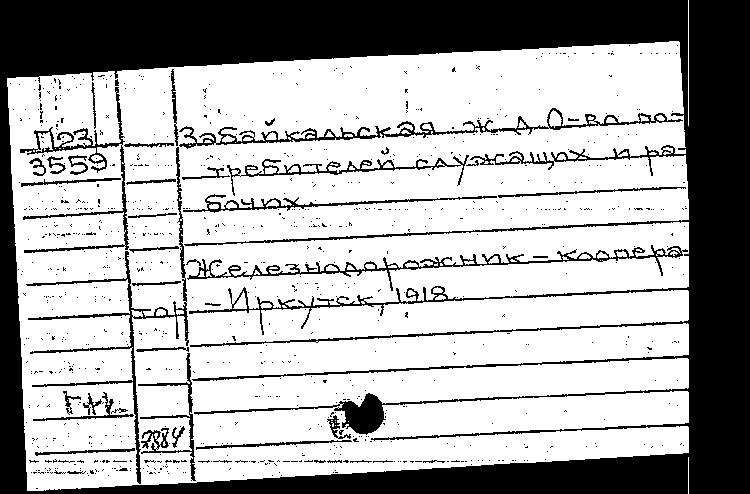 П23
3559
Забайкальская ж д О-во по-
требителей служащих и ра-
бочих.
Железнодорожник-коопера-
тор -Иркутск, 1918
2884